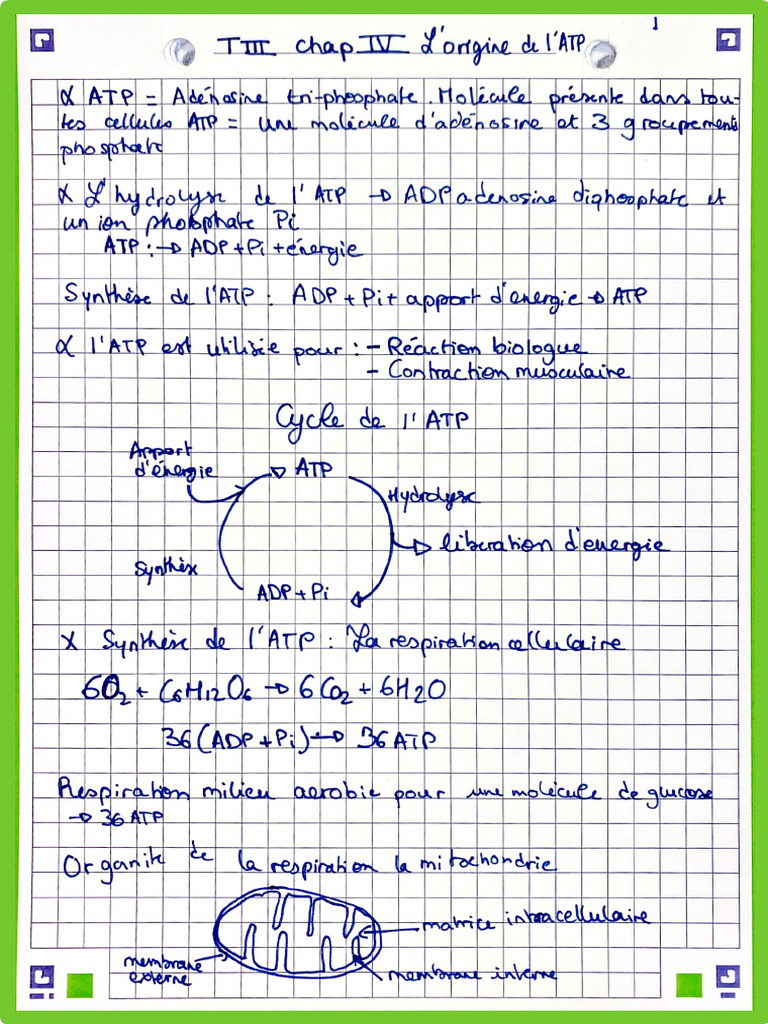 1
TIII chap IV L'origine de l'ATP
α ATP = Adénosine tri-phosphate. Molécule présente dans tou-
tes cellules ATP = une molécule d'adénosine et 3 groupements
phosphate
α L'hydrolyse de l'ATP → ADP adenosine diphosphate et
un ion phosphate Pi
ATP : → ADP + Pi + énergie
Synthèse de l'ATP : ADP + Pi + apport d'énergie → ATP
α l'ATP est utilisée pour : - Réaction biologue
- Contraction musculaire
Cycle de l'ATP
Apport
d'énergie
ATP
Hydrolyse
libération d'energie
Synthèse
ADP + Pi
X Synthèse de l'ATP : La respiration cellulaire
6O2 + C6H12O6 → 6CO2 + 6H2O
36(ADP+Pi) → 36 ATP
Respiration milieu aerobie pour une molécule de glucose
→ 36 ATP
Organite de la respiration la mitochondrie
matrice intracellulaire
membrane
externe
membrane interne